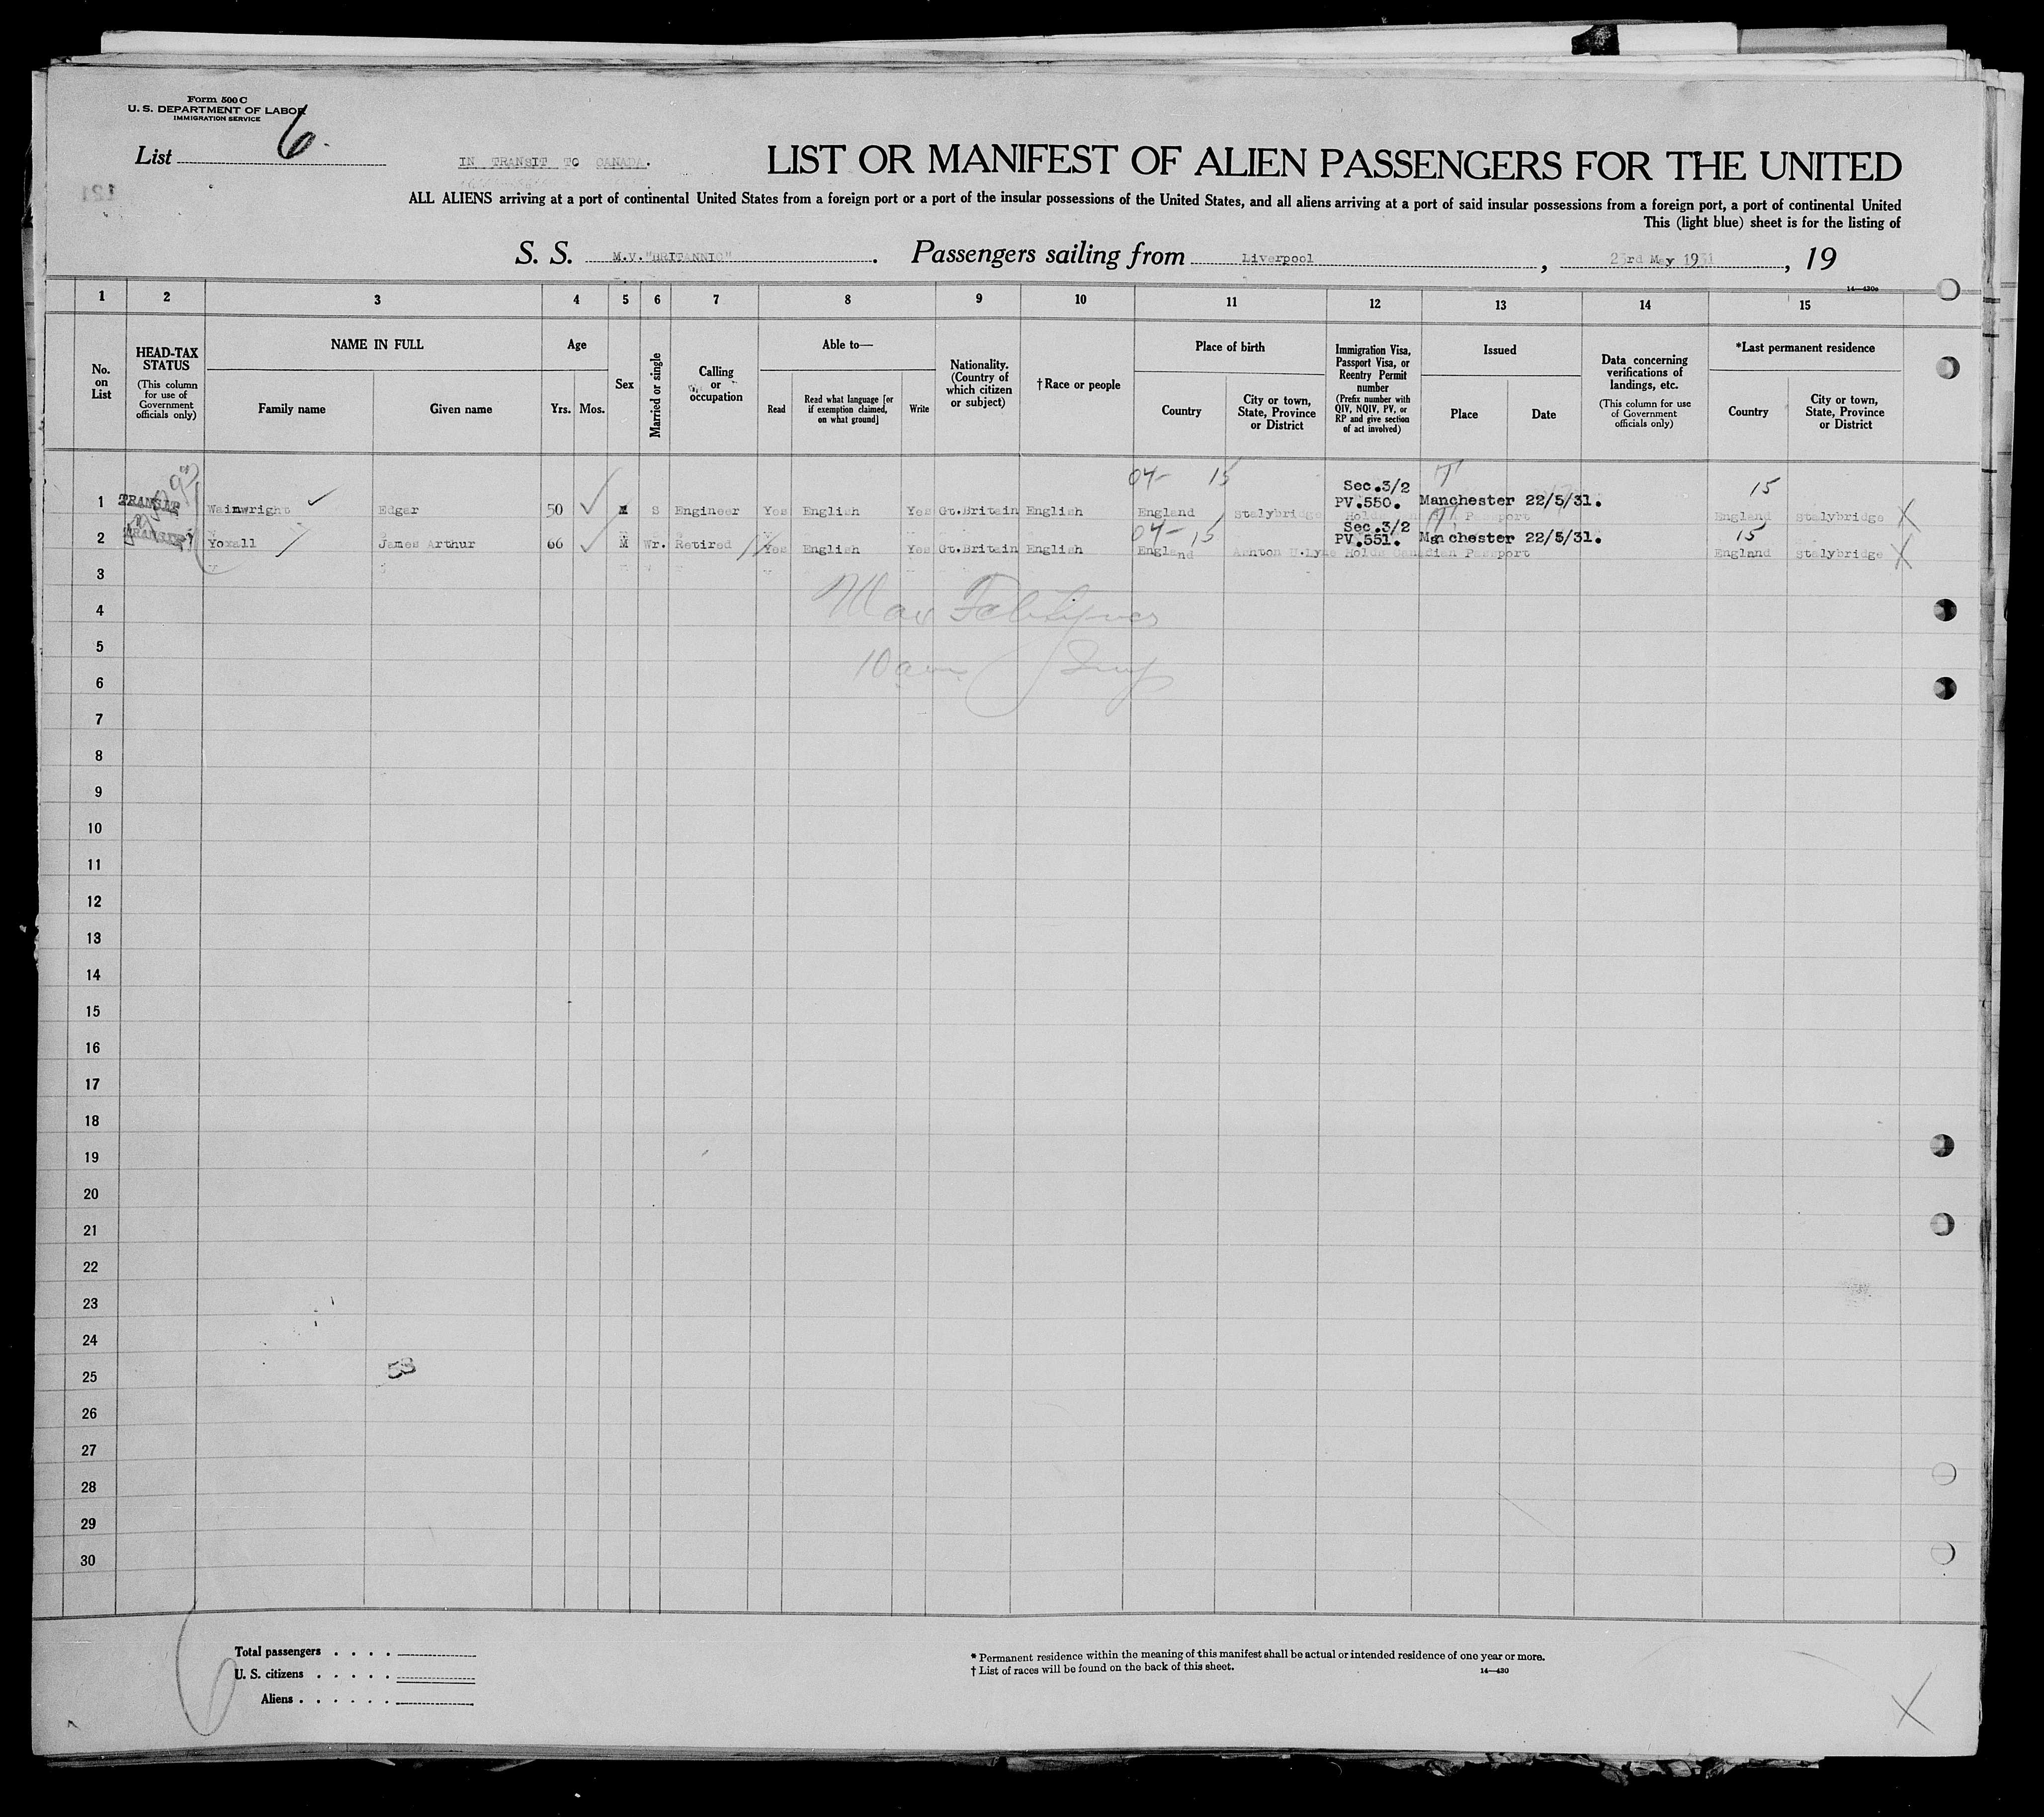 Form 500 C
U. S. DEPARTMENT OF LABOR
IMMIGRATION SERVICE
List 6.
IN TRANSIT TO CANADA.
LIST OR MANIFEST OF ALIEN PASSENGERS FOR THE UNITED
121
ALL ALIENS arriving at a port of continental United States from a foreign port or a port of the insular possessions of the United States, and all aliens arriving at a port of said insular possessions from a foreign port, a port of continental United
This (light blue) sheet is for the listing of
S. S. M.V."BRITANNIC". Passengers sailing from Liverpool, 23rd May 1931, 19
14—430c
1 2 3 4 5 6 7 8 9 10 11 12 13 14 15
No. on List
HEAD-TAX STATUS
(This column for use of Government officials only)
NAME IN FULL
Family name
Given name
Age
Yrs. Mos.
Sex
Married or single
Calling or occupation
Able to—
Read
Read what language [or if exemption claimed, on what ground]
Write
Nationality. (Country of which citizen or subject)
†Race or people
Place of birth
Country
City or town, State, Province or District
Immigration Visa, Passport Visa, or Reentry Permit number
(Prefix number with QIV, NQIV, PV, or RP and give section of act involved)
Issued
Place
Date
Data concerning verifications of landings, etc.
(This column for use of Government officials only)
*Last permanent residence
Country
City or town, State, Province or District
04- 15 Sec.3/2 T 15
1 TRANSIT Wainwright Edgar 50 M S Engineer Yes English Yes Gt.Britain English England Stalybridge PV.550. Manchester 22/5/31. England Stalybridge X
04-15 Sec.3/2 T 15
2 TRANSIT Yoxall James Arthur 66 M Wr. Retired Yes English Yes Gt.Britain English England Ashton U.Lyne Holds Canadian Passport PV.551. Manchester 22/5/31. England Stalybridge X
3
4
5
10 am
6
7
8
9
10
11
12
13
14
15
16
17
18
19
20
21
22
23
24
25
53
26
27
28
29
30
Total passengers . . . .
U. S. citizens . . . . .
Aliens . . . . . .
* Permanent residence within the meaning of this manifest shall be actual or intended residence of one year or more.
† List of races will be found on the back of this sheet.
14—430
X